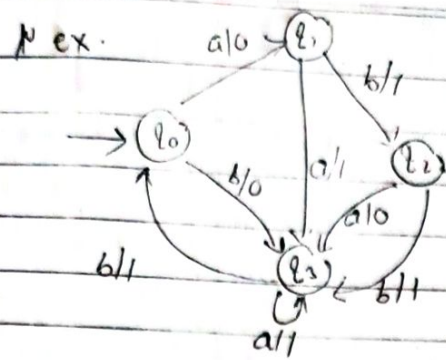 ex.
a/0
q₁
b/1
q₀
b/0
a/1
q₂
a/0
b/1
q₃
b/1
a/1